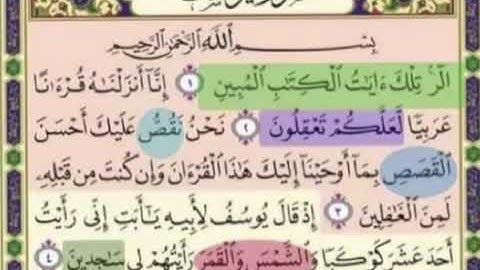 بِسْمِ اللَّهِ الرَّحْمَٰنِ الرَّحِيمِ
الٓر ۚ تِلْكَ ءَايَٰتُ الْكِتَٰبِ الْمُبِينِ ۝١ إِنَّآ أَنزَلْنَٰهُ قُرْءَٰنًا
عَرَبِيًّا لَّعَلَّكُمْ تَعْقِلُونَ ۝٢ نَحْنُ نَقُصُّ عَلَيْكَ أَحْسَنَ
الْقَصَصِ بِمَآ أَوْحَيْنَآ إِلَيْكَ هَٰذَا الْقُرْءَانَ وَإِن كُنتَ مِن قَبْلِهِۦ
لَمِنَ الْغَٰفِلِينَ ۝٣ إِذْ قَالَ يُوسُفُ لِأَبِيهِ يَٰٓأَبَتِ إِنِّى رَأَيْتُ
أَحَدَ عَشَرَ كَوْكَبًا وَالشَّمْسَ وَالْقَمَرَ رَأَيْتُهُمْ لِى سَٰجِدِينَ ۝٤